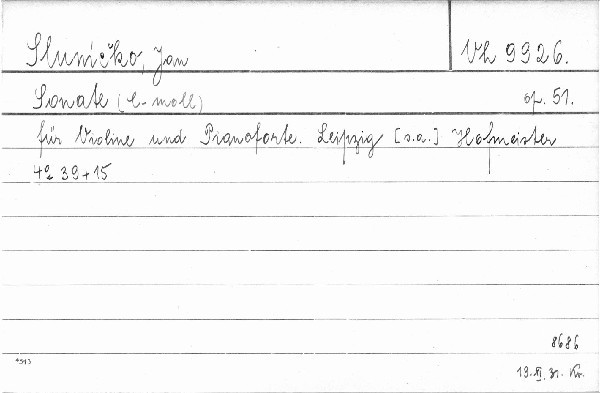 Sluničko, Jan
Vh 9926.
Sonate (e-moll) op. 51.
für Violine und Pianoforte. Leipzig [s.a.] Hofmeister
4º 39+15
8686
4513
19. XI. 31. Kr.